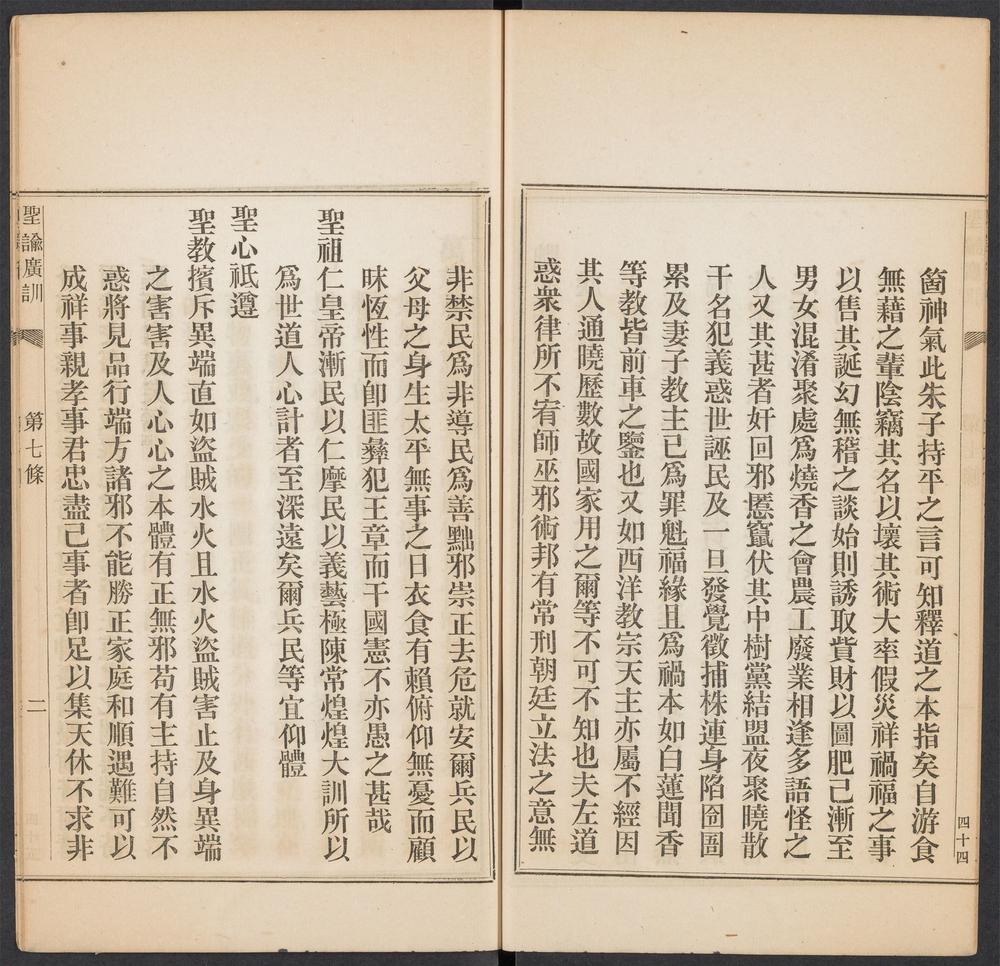 箇神氣此朱子持平之言可知釋道之本指矣自游食
無藉之輩陰竊其名以壞其術大率假災祥禍福之事
以售其誕幻無稽之談始則誘取貲財以圖肥己漸至
男女混淆聚處爲燒香之會農工廢業相逢多語怪之
人又其甚者奸回邪慝竄伏其中樹黨結盟夜聚曉散
干名犯義惑世誣民及一旦發覺徵捕株連身陷囹圄
累及妻子教主已爲罪魁福緣且爲禍本如白蓮聞香
等教皆前車之鑒也又如西洋教宗天主亦屬不經因
其人通曉歷數故國家用之爾等不可不知也夫左道
惑衆律所不宥師巫邪術邦有常刑朝廷立法之意無
四十四
非禁民爲非導民爲善黜邪崇正去危就安爾兵民以
父母之身生太平無事之日衣食有賴俯仰無憂而顧
昧恆性而卽匪彝犯王章而干國憲不亦愚之甚哉
聖祖仁皇帝漸民以仁摩民以義藝極陳常煌煌大訓所以
爲世道人心計者至深遠矣爾兵民等宜仰體
聖心祗遵
聖教擯斥異端直如盜賊水火且水火盜賊害止及身異端
之害害及人心心之本體有正無邪苟有主持自然不
惑將見品行端方諸邪不能勝正家庭和順遇難可以
成祥事親孝事君忠盡己事者卽足以集天休不求非
聖諭廣訓
第七條
二